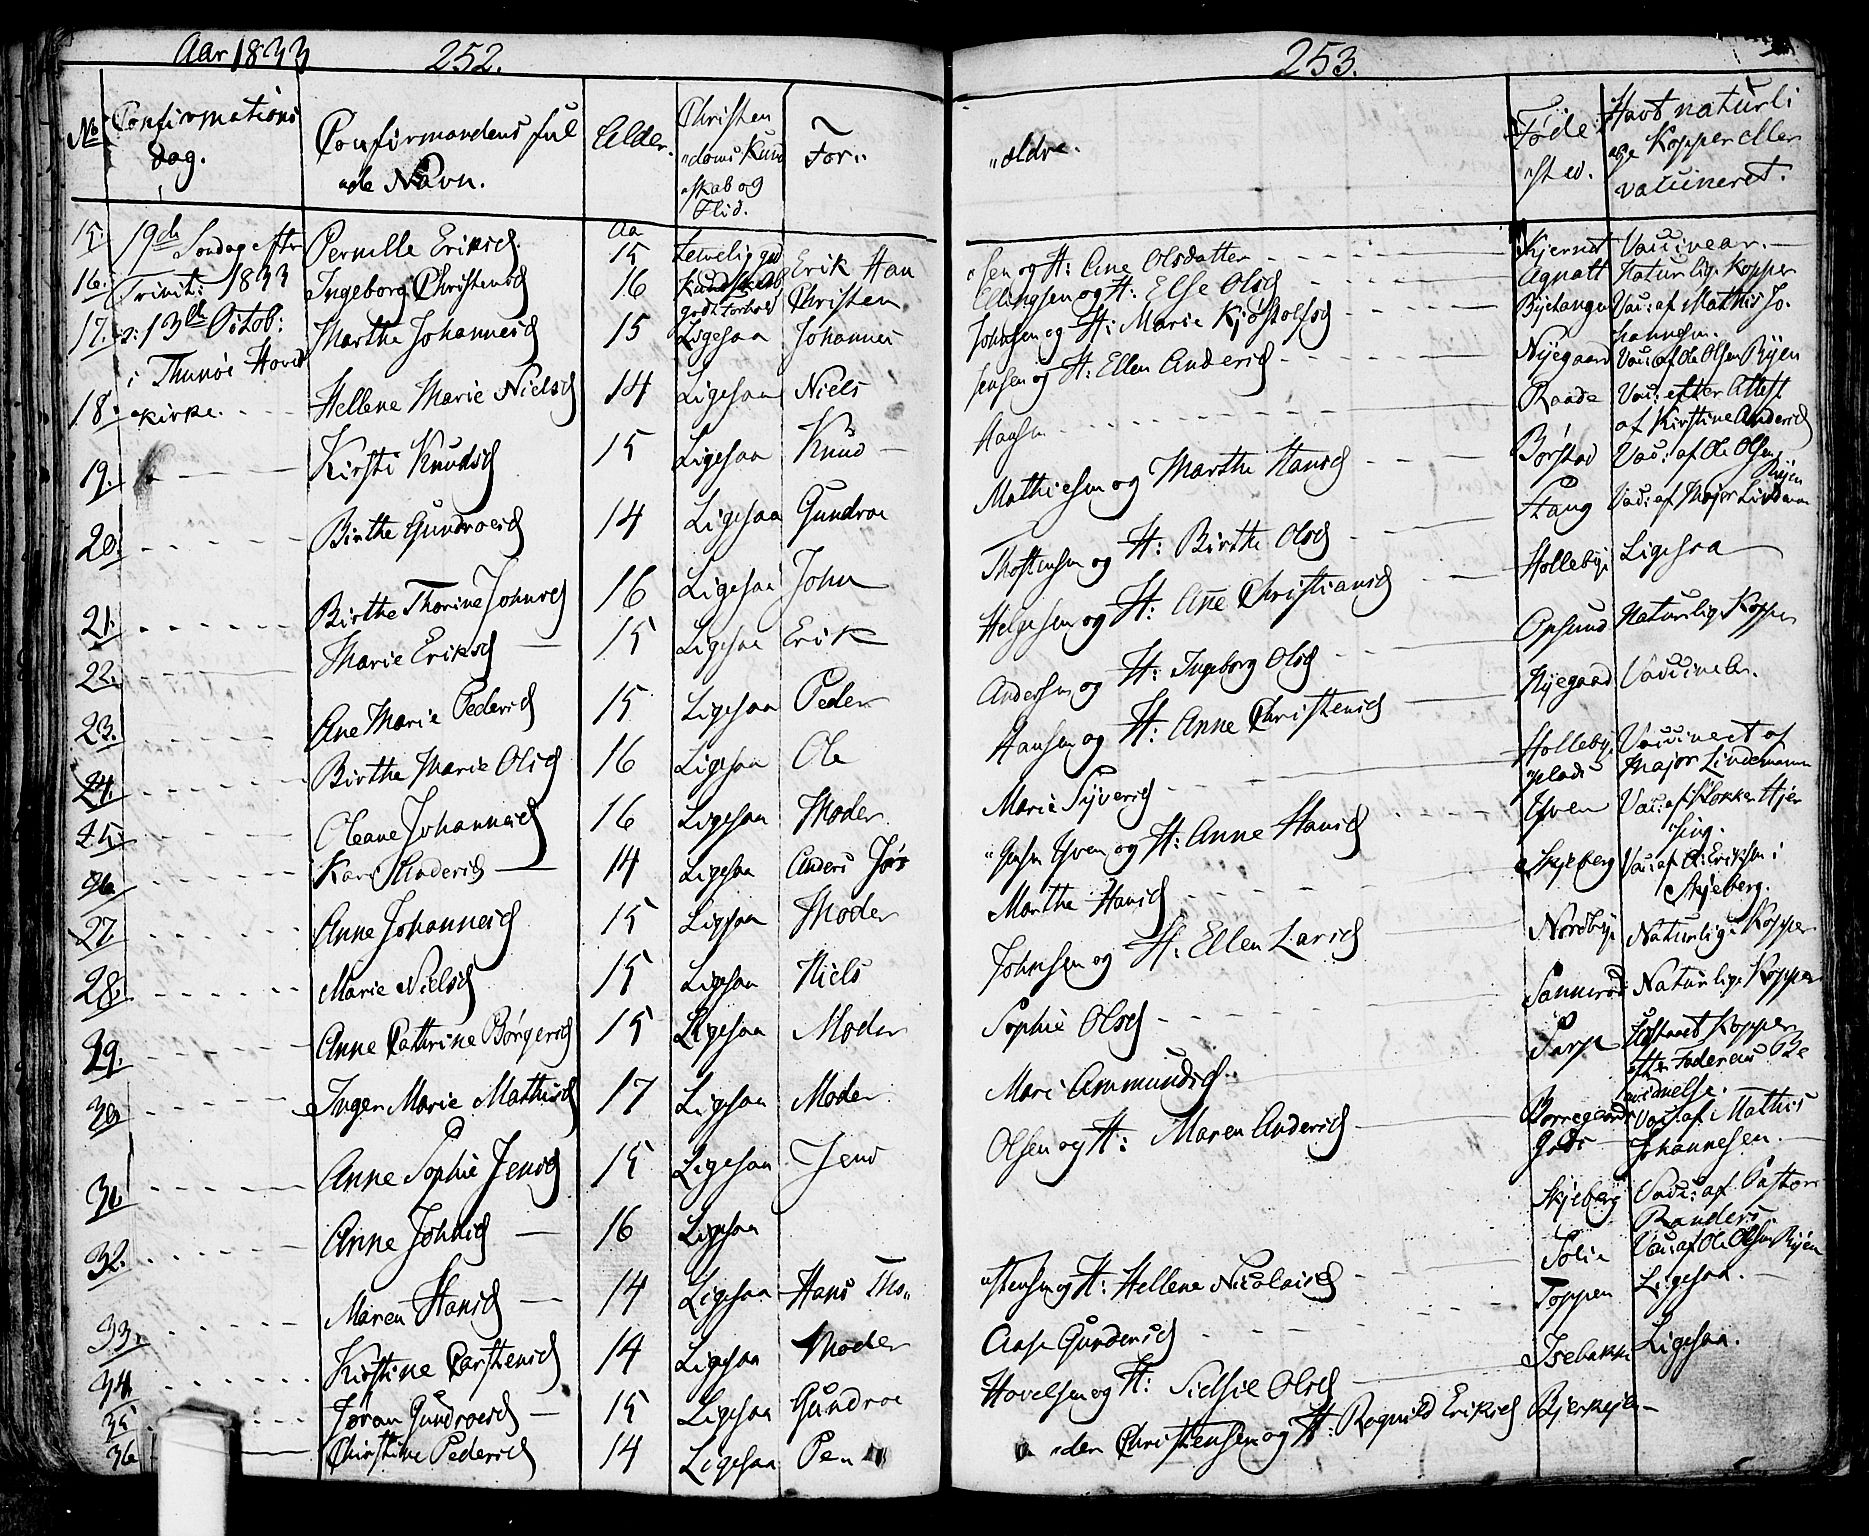 Aar 1833
252.
No
Confirmations
dag.
Confirmandens ful
de Navn.
Alder.
Christen
doms Kund
skab og
Flid.
For„
15
19de Søndag efter
Pernille Eriksd.
Aa
15
16.
Trinit: 1833
Ingeborg Christensd
16
Kundskab
godt Forhold
Erik Han
Christen
17.
13de Octob:
Marthe Johannesd
15
Ligesaa
Johannes
i Thunøe Hoved
18.
kirke.
Hellene Marie Nielsd
14
Ligesaa
Niels
19.
Kirsti Knudsd
15
Ligesaa
Knud
20.
Birthe Gundroesd
14
Ligesaa
Gundroe
21.
Birthe Thorine Johnsd
16
Ligesaa
John
22.
Marie Eriksd
15
Ligesaa
Erik
23.
Ane Marie Pedersd
15
Ligesaa
Peder
24.
Birthe Marie Olsd
16
Ligesaa
Ole
25.
Oleane Johannesd
16
Ligesaa
Moder
26
Kari Andersd
14
Ligesaa
Anders Jør
27.
Anne Johannesd
15
Ligesaa
Moder
28.
Marie Nielsd
15
Ligesaa
Niels
29.
Anne Cathrine Børgersd
15
Ligesaa
Moder
30.
Inger Marie Mathisd
17
Ligesaa
Moder
31.
Anne Sophie Jensd
15
Ligesaa
Jens
32.
Anne Johnsd
16
Ligesaa
33.
Maren Hansd
14
Ligesaa
Hans Tho„
34.
Kirstine Carstensd
14
Ligesaa
Moder
35
Jøran Gundroesd
15
Ligesaa
Gundroe
36
Christine Pedersd
14
Ligesaa
Pe
253.
„ældre.
Føde
sted.
Havt naturli
ge Kopper eller
vacineret.
sen og H: Ane Olsdatter
Kjernet
Ellingsen og H: Else Olsd
Agnatt
Naturlige Kopper
Johnsen og H: Marie Kjøstolfsd
Vac: af Mathis Jo-
hannesen.
sensen og H: Ellen Andersd
Nyegaard
Vac: af Ole Olsen Ryen
Hansen
Raade
Vac: efter Attest
af Kirstine Andersd
Mathiesen og Marthe Hansd
Børstad
Vac: af Ole Olsen
Ryen
Thostensen og H: Birthe Olsd
Stang
Vac: af Major Lindeman
Helgesen og H: Ane Christiansd
Hollebye
Ligesaa
Andersen og H: Ingeborg Olsd
Opsund
Naturlige Kopper
Hansen og H: Anne Christensd
Nyegaard
Marie Syversd
Hollebye
plads
Vaccineret af
Major Lindemann
gensen Yven og H: Anne Hansd
Yven
Vac: af Klokker Hjer
sing.
Marthe Hansd
Skjeberg
Vac: af O: Eriksen i
Skjeberg.
Johnsen og H: Ellen Larsd
Nordbye
Naturlige Kopper
Sophie Olsd
Sannerød
Naturlige Kopper
Mari Ammundsd.
Sarp
Kopper
efter Faderens Be
vidnelse.
Olsen og H: Maren Andersd
Borregaards
Gods
Vac: af Mathis
Johannesen.
Skjeberg
Vac: af Pastor
Randers
stensen og H: Hellene Nicolaisd
Solie
Vac: af Ole Olsen Ryen
Aase Gundersd
Toppen
Ligesaa.
Hovelsen og H: Sidsie Olsd
Isebakke
Ligesaa.
der Christensen og H: Ragnild Eriksd